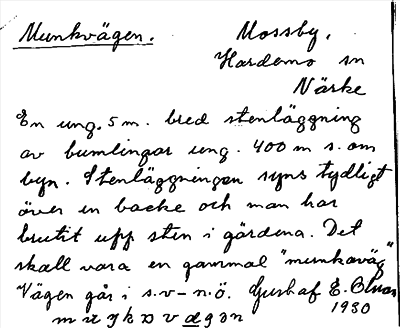 Munkvägen.
Mossby,
Hardemo sn
Närke
En ung. 5 m. bred stenläggning
av bumlingar ung. 400 m s. om
byn. Stenläggningen syns tydligt
över en backe och man har
brutit upp sten i gärdena. Det
skall vara en gammal "munkaväg"
Vägen går i s.v-n.ö. Gustaf E.
1930